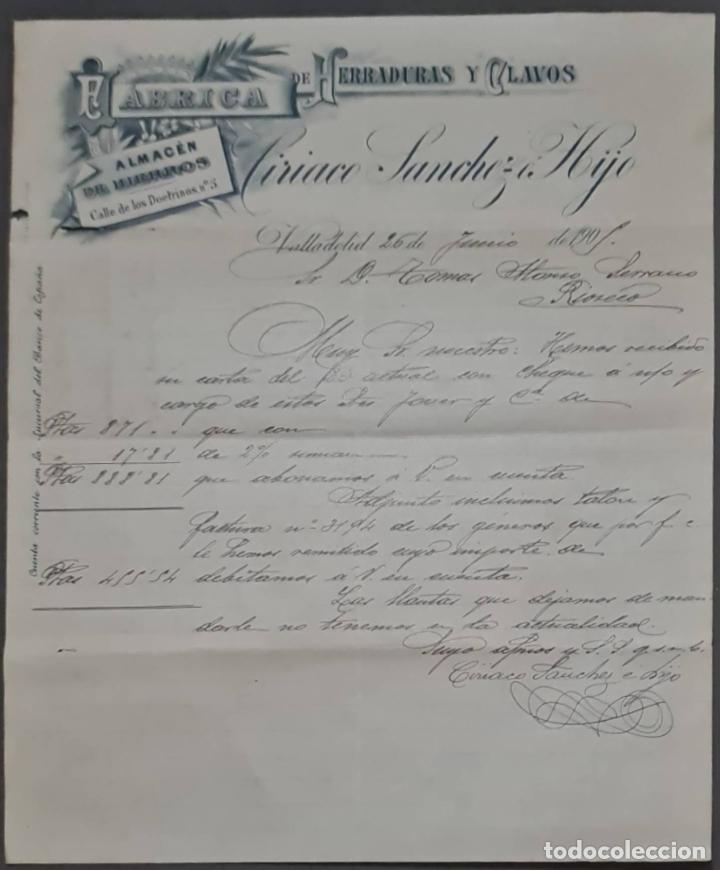 FABRICA DE HERRADURAS Y CLAVOS
ALMACÉN
DE HIERROS
Calle de los Doctrinos, nº 5
Ciriaco Sanchez é Hijo
Valladolid 26 de Junio de 1905.
Sr. D. Tomas Alonso Serrano
Rioseco
Muy Sr. nuestro: Hemos recibido
su carta del actual con cheque á n/o y
cargo de estos Sres Jover y Cª de
Ptas 871.. que con
" 17'81 de 2%
Ptas 888'81 que abonamos á V. en cuenta.
Adjunto incluimos talon y
factura nº 3194 de los géneros que por f.c.
le hemos remitido cuyo importe de
Ptas 455'54 debitamos á V. en cuenta.
Las llantas que dejamos de man
darle no tenemos en la actualidad.
Suyo afmos y S. S. q. s. m. b.
Ciriaco Sanchez é Hijo
Cuenta corriente con la Sucursal del Banco de España
todocoleccion.net